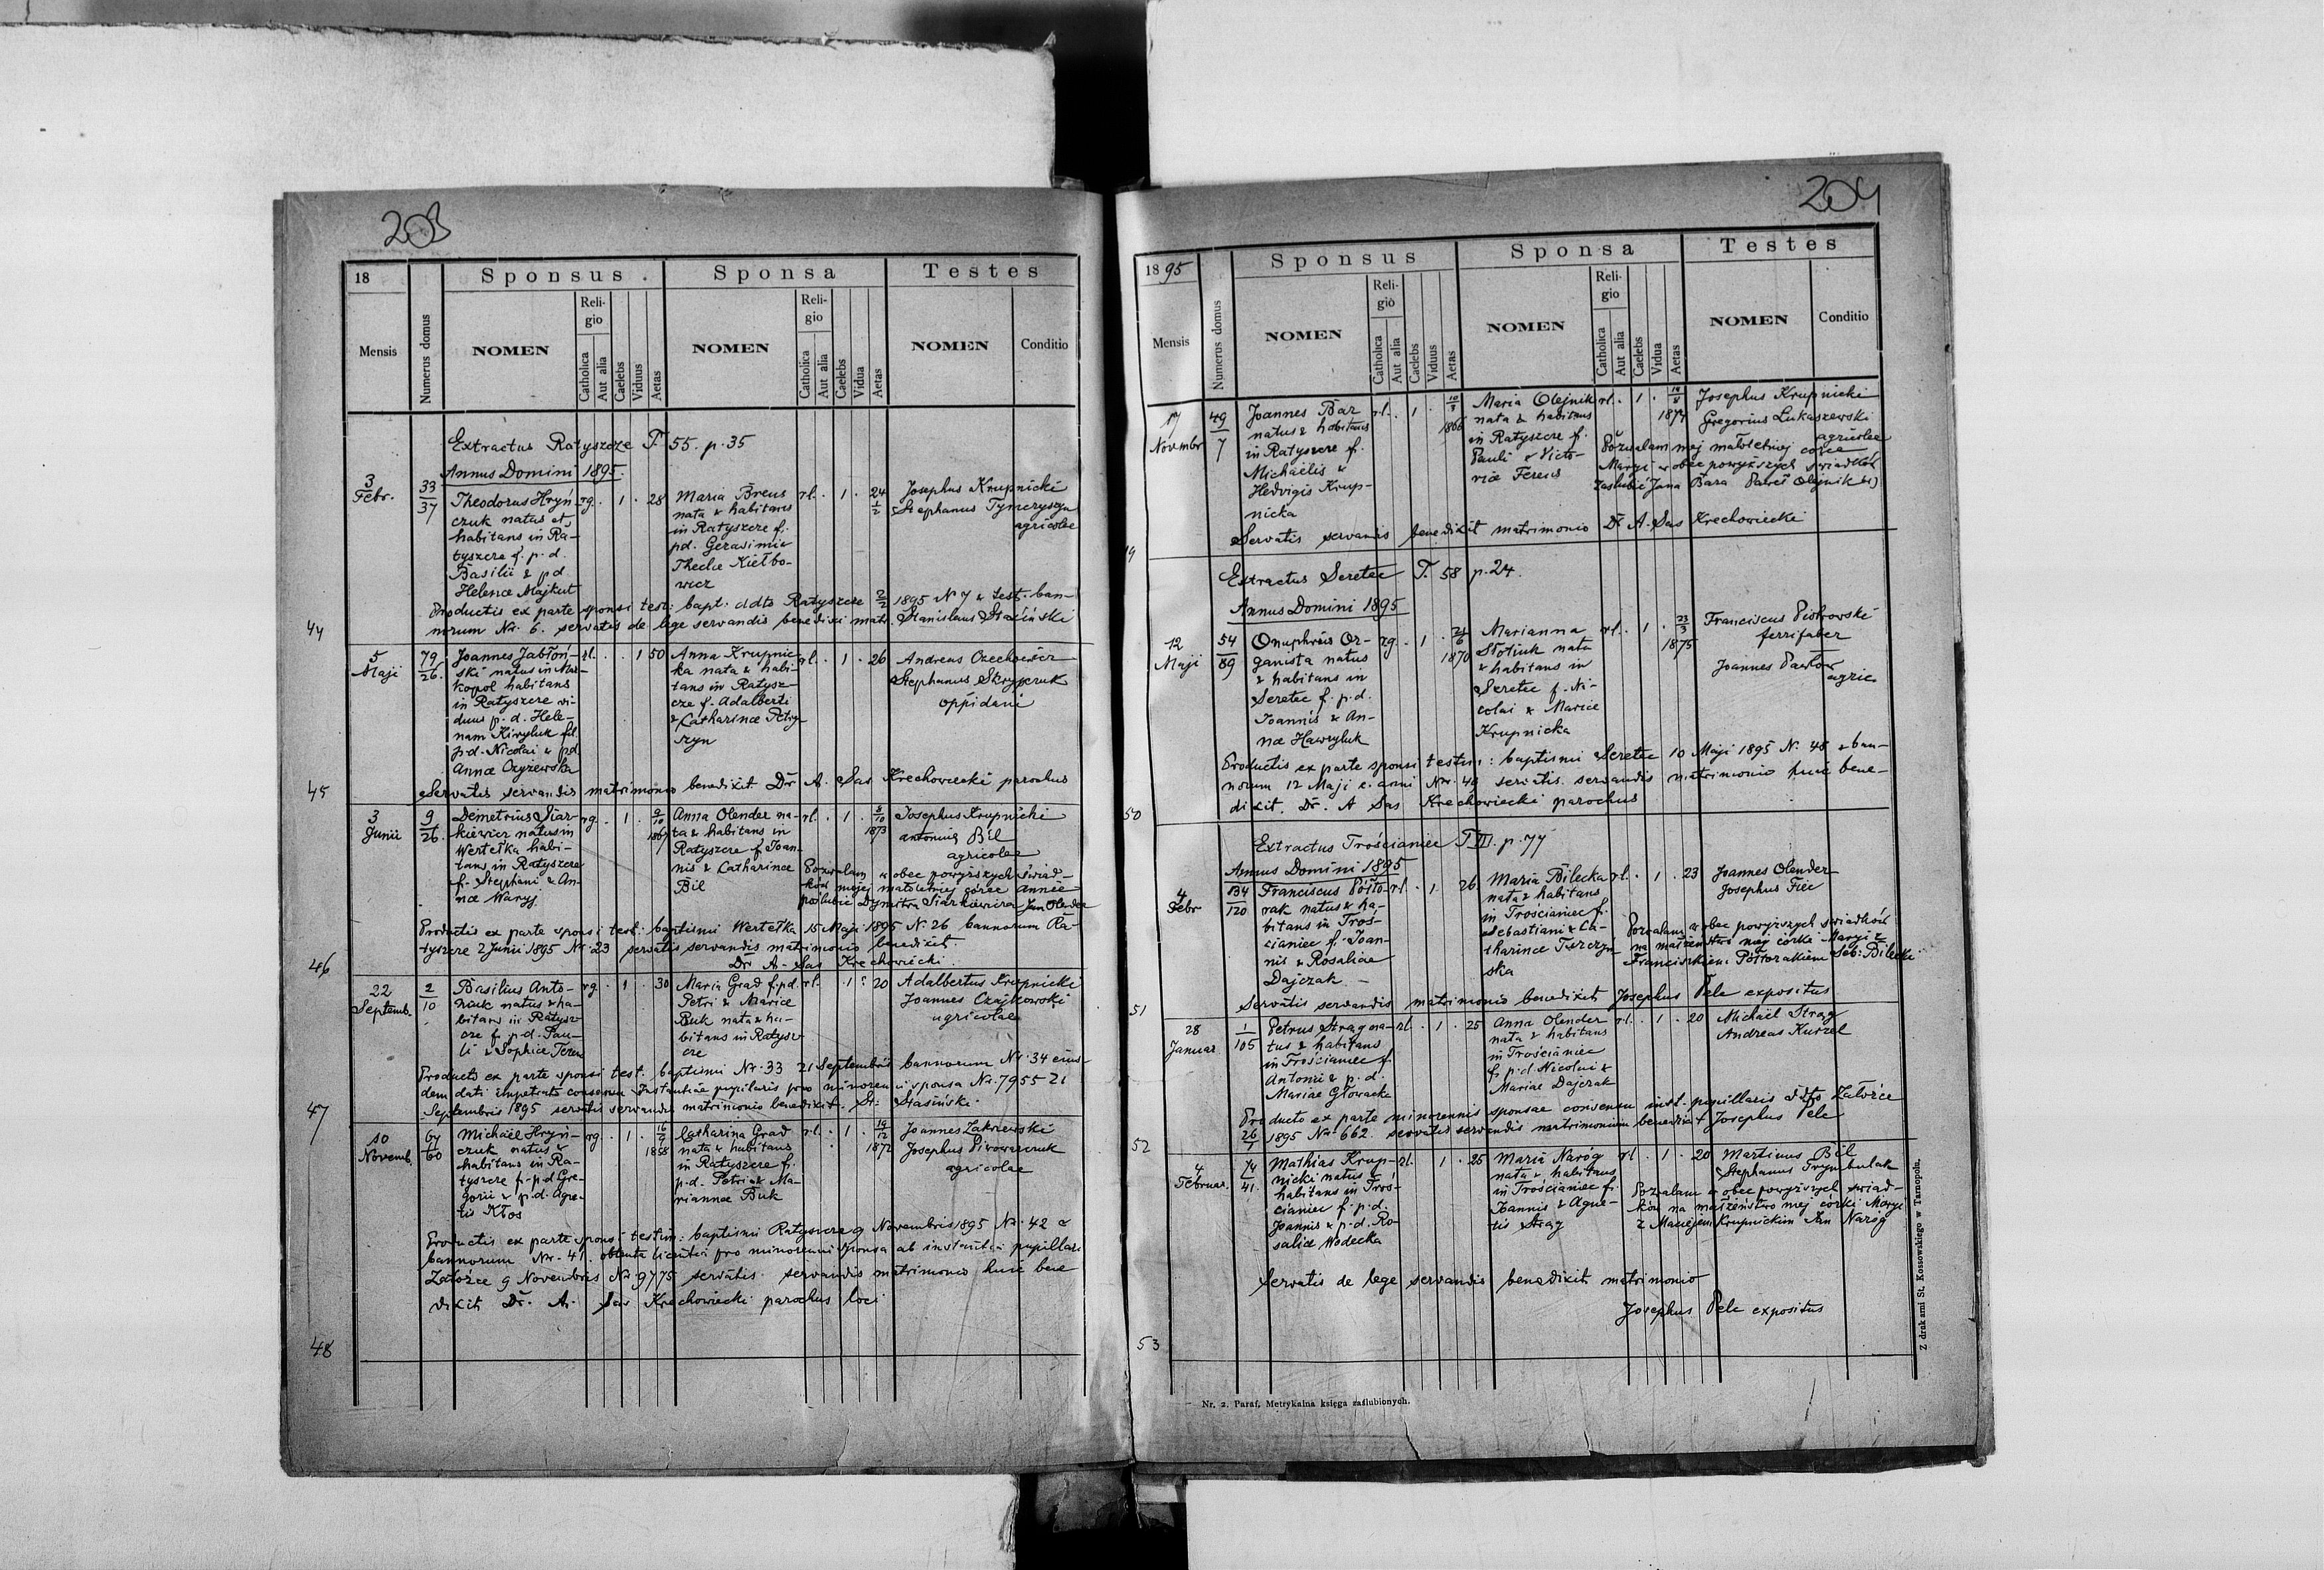 203
18
Sponsus
Sponsa
Testes
Mensis
Numerus domus
NOMEN
Religio
Catholica
Aut alia
Caelebs
Viduus
Aetas
NOMEN
Religio
Catholica
Aut alia
Caelebs
Vidua
Aetas
NOMEN
Conditio
Extractus Ratyszcze T. 55. p. 35
Annus Domini 1895.
3 Febr.
33/37
Theodorus Hryń-
czuk natus et
habitans in Ra-
tyszcze f. p. d.
Basilii & pd
Helenæ Majkut
rg. . 1 . 28
Maria Breus
nata & habitans
in Ratyszcze f.
pd. Gerasimie
Theclæ Kiełbo-
wicz
rl. . 1 . 24 1/2
Josephus Krupnicki
Stephanus Tymczyszyn
agricolæ
Productis ex parte sponsi test: bapt. ddto Ratyszcze 2/2 1895 N 7 & test. ban-
norum Nr. 6. servatis de lege servandis benedixi matr. Stanislaus Stasiński
44
5 Maji
79/26.
Joannes Jabłoń-
ski natus in Mar-
kopol habitans
in Ratyszcze vi-
duus p. d. Hele-
nam Kiryluk fil.
p.d. Nicolai & pd
Annæ Czyżewska
rl. . . 1 50
Anna Krupnic-
ka nata & habi-
tans in Ratysz-
cze f. Adalberti
& Catharinæ Petry-
szyn
rl. . 1 . 26
Andreas Orzechowicz
Stephanus Skrypczuk
oppidani
Servatis servandis matrimonio benedixit Dr A. Sas Krechowiecki parochus
45
3 Junii
9/26.
Demetrius Siar-
kiewicz natus in
Wertełka habi-
tans in Ratyszcze
f. Stephani & An-
næ Waryj
rg. . 1 . 9/10 1867
Anna Olender na-
ta & habitans in
Ratyszcze f. Joan-
nis & Catharinæ
Bil
rl. . 1 . 8/10 1873
Josephus Krupnicki
Antonius Bil
agricolæ
Pozwalam w obec powyższych świad-
ków mojej małoletniej córce Annie
poślubić Dymitra Siarkiewicza Jan Olender
Productis ex parte sponsi test: baptismi Wertełka 15 Maji 1895 N. 26 bannorum Ra-
tyszcze 2 Junii 1895 Nr. 23 servatis servandis matrimonio benedixit.
Dr A. Sas Krechowiecki.
46
22 Septemb.
2/10
Basilius Anto-
niuk natus & ha-
bitans in Ratysz-
cze f. p.d. Pau-
li & Sophiæ Feren
rg . 1 . 30
Maria Grad f. p.d.
Petri & Mariæ
Buk nata & ha-
bitans in Ratysz-
cze
rl. . 1 . 20
Adalbertus Krupnicki
Joannes Czajkowski
agricolæ
Producto ex parte sponsi test. baptismi Nr. 33 21 Septembris bannorum Nr. 34 eius-
dem dati impetrato consensu Instantiæ pupilaris pro minorenni sponsa Nr. 7955 21
Septembris 1895 servatis servandis matrimonio benedixit. St. Stasiński.
47
10 Novemb.
67/60
Michaël Hryń-
czuk natus &
habitans in Ra-
tyszcze f. p.d Gre-
gorii & p.d. Agne-
tis Kłos
rg. . 1 . 16/9 1858
Catharina Grad
nata & habitans
in Ratyszcze f.
p.d. Petri & Ma-
riannæ Buk
rl. . 1 . 19/12 1872
Joannes Zakrzewski
Josephus Piwowarczuk
agricolæ
Productis ex parte sponsi testim: baptismi Ratyszcze 9 Novembris 1895 Nr. 42 &
bannorum Nr. 41. obtenta licentia pro minorenni sponsa ab instantia pupillari
Załoźce 9 Novembris Nr. 9775 servatis servandis matrimonio huic bene
dixit Dr. A. Sas Krechowiecki parochus loci
48
204
1895
Sponsus
Sponsa
Testes
Mensis
Numerus domus
NOMEN
Religio
Catholica
Aut alia
Caelebs
Viduus
Aetas
NOMEN
Religio
Catholica
Aut alia
Caelebs
Vidua
Aetas
NOMEN
Conditio
17 Novembr
49/7
Joannes Bar
natus & habitans
in Ratyszcze f.
Michaëlis &
Hedvigis Krup-
nicka
rl. . 1 . 10/3 1866
Maria Olejnik
nata & habitans
in Ratyszcze f.
Pauli & Victo-
riæ Ferens
rl. . 1 . 1877
Josephus Krupnicki
Gregorius Łukaszewski
agricolæ
Pozwalam mej małoletniej córce
Maryi w obec powyższych świadków
zaślubić Jana Bara Paweł Olejnik
Servatis servandis benedixit matrimonio Dr A. Sas Krechowiecki
49
Extractus Seretec T. 58 p. 24.
Annus Domini 1895
12 Maji
54/89
Onuphrius Or-
ganista natus
& habitans in
Seretec f. p.d.
Joannis & An-
næ Hawryluk
rg. . 1 . 21/6 1870
Marianna
Słotiuk nata
& habitans in
Seretec f. Ni-
colai & Mariæ
Krupnicka
rl. . 1 . 23/3 1875
Franciscus Piotrowski
ferrifaber
Joannes Pawłów
agric.
Productis ex parte sponsi testim: baptismi Seretec 10 Maji 1895 N. 48 & ban-
norum 12 Maji c. anni Nr. 40 servatis servandis matrimonio huic bene-
dixit. Dr. A Sas Krechowiecki parochus
50
Extractus Trościaniec T. III. p. 77
Annus Domini 1895
4 Febr
134/120
Franciscus Półto-
rak natus & ha-
bitans in Troś-
cianiec f. Joan-
nis & Rosaliæ
Dajczak. –
rl. . 1 . 26.
Maria Bilecka
nata & habitans
in Trościaniec f.
Sebastiani & Ca-
tharinæ Turczyn-
ska
rl. . 1 . 23
Joannes Olender
Josephus Fiec
Pozwalam w obec powyższych świadków
na małżeństwo mej córki Maryi z
Franciszkiem Półtorakiem Seb: Bilecki
Servatis servandis matrimonio benedixit Josephus Pele expositus
51
28 Januar
1/105
Petrus Strag na-
tus & habitans
in Trościaniec f.
Antonii & p. d.
Mariæ Głowacka
rl. . 1 . 25
Anna Olender
nata & habitans
in Trościaniec
f. p.d Nicolai &
Mariæ Dajczak
rl. . 1 . 20
Michaël Strag
Andreas Kurzel
Producto ex parte minorennis sponsae consensu inst. pupillaris ddto Załoźce
26/1 1895 Nr 662. servatis servandis matrimonium benedixit Josephus Pele
52
4 Februar.
74/41.
Mathias Krup-
nicki natus &
habitans in Troś-
cianiec f. p.d.
Joannis & p.d. Ro-
saliæ Wodecka
rl. 1 . 25
Maria Naróg
nata & habitans
in Trościaniec f.
Joannis & Agne-
tis Strag
rl . 1 . 20
Martinus Bil
Stephanus Trymbulak
Pozwalam w obec powyższych świad-
ków na małżeństwo mej córki Maryi
z Maciejem Krupnickim Jan Naróg
Servatis de lege servandis benedixit matrimonio
Josephus Pele expositus
53
Nr. 2. Paraf. Metrykalna księga zaślubionych.
Z drukarni St. Kossowskiego w Tarnopolu.